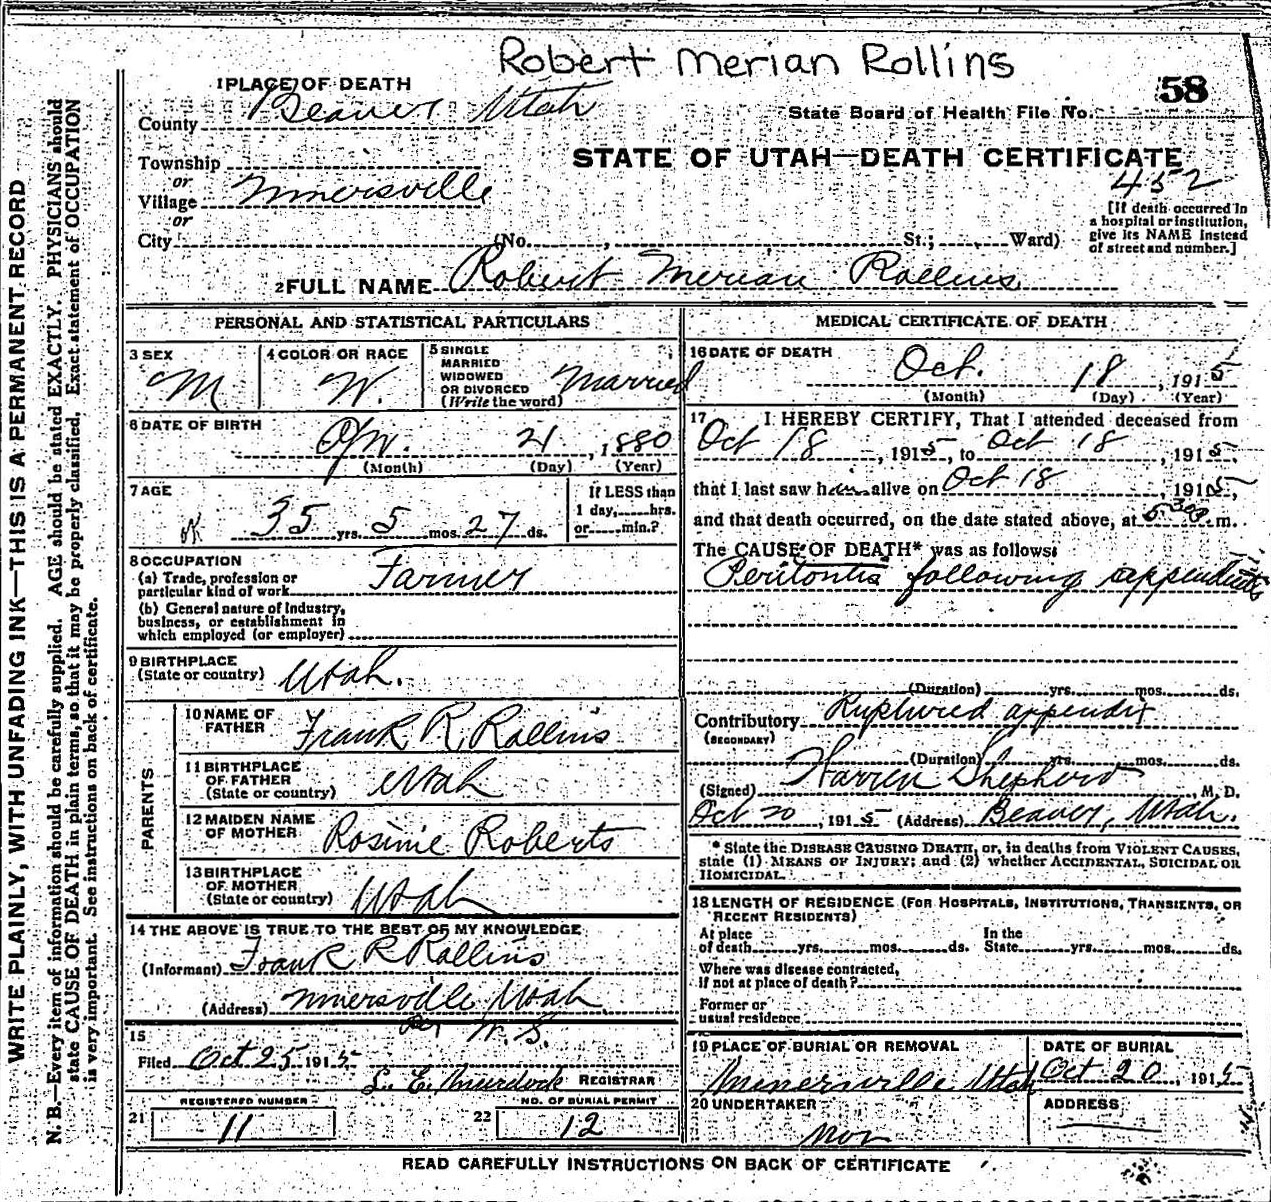 Robert Merian Rollins
1 PLACE OF DEATH
58
County Beaver Utah
State Board of Health File No.
Township
STATE OF UTAH—DEATH CERTIFICATE
or
452
Village Minersville
or
City (No. , St.; Ward)
[If death occurred in
a hospital or institution,
give its NAME instead
of street and number.]
2 FULL NAME Robert Merian Rollins
PERSONAL AND STATISTICAL PARTICULARS
3 SEX M
4 COLOR OR RACE W.
5 SINGLE
MARRIED
WIDOWED
OR DIVORCED
(Write the word) Married
6 DATE OF BIRTH
Apr. 21, 1880
(Month) (Day) (Year)
7 AGE
35 yrs. 5 mos. 27 ds.
If LESS than
1 day, hrs.
or min.?
8 OCCUPATION
(a) Trade, profession or
particular kind of work Farmer
(b) General nature of industry,
business, or establishment in
which employed (or employer)
9 BIRTHPLACE
(State or country) Utah.
PARENTS
10 NAME OF
FATHER Frank R. Rollins
11 BIRTHPLACE
OF FATHER
(State or country) Utah
12 MAIDEN NAME
OF MOTHER Rosinie Roberts
13 BIRTHPLACE
OF MOTHER
(State or country) Utah
14 THE ABOVE IS TRUE TO THE BEST OF MY KNOWLEDGE
(Informant) Frank R Rollins
(Address) Minersville Utah
Per W. S.
15
Filed Oct 25 1915
L. E. Murdock REGISTRAR
REGISTERED NUMBER
21 11
NO. OF BURIAL PERMIT
22 12
MEDICAL CERTIFICATE OF DEATH
16 DATE OF DEATH
Oct. 18, 1915
(Month) (Day) (Year)
17 I HEREBY CERTIFY, That I attended deceased from
Oct 18, 1915, to Oct 18, 1915,
that I last saw him alive on Oct 18, 1915,
and that death occurred, on the date stated above, at 5 30 m.
The CAUSE OF DEATH* was as follows:
Peritontis following appendicitis
(Duration) yrs. mos. ds.
Contributory Ruptured appendix
(SECONDARY)
(Duration) yrs. mos. ds.
(Signed) Warren Shepherd, M. D.
Oct 20, 1915 (Address) Beaver, Utah.
* State the DISEASE CAUSING DEATH, or, in deaths from VIOLENT CAUSES,
state (1) MEANS OF INJURY; and (2) whether ACCIDENTAL, SUICIDAL OR
HOMICIDAL.
18 LENGTH OF RESIDENCE (FOR HOSPITALS, INSTITUTIONS, TRANSIENTS, OR
RECENT RESIDENTS)
At place
of death yrs. mos. ds.
In the
State yrs. mos. ds.
Where was disease contracted,
if not at place of death?
Former or
usual residence
19 PLACE OF BURIAL OR REMOVAL
Minersville Utah
DATE OF BURIAL
Oct 20, 1915
20 UNDERTAKER
ADDRESS
READ CAREFULLY INSTRUCTIONS ON BACK OF CERTIFICATE
WRITE PLAINLY, WITH UNFADING INK—THIS IS A PERMANENT RECORD
N. B.—Every item of information should be carefully supplied. AGE should be stated EXACTLY. PHYSICIANS should
state CAUSE OF DEATH in plain terms, so that it may be properly classified. Exact statement of OCCUPATION
is very important. See instructions on back of certificate.